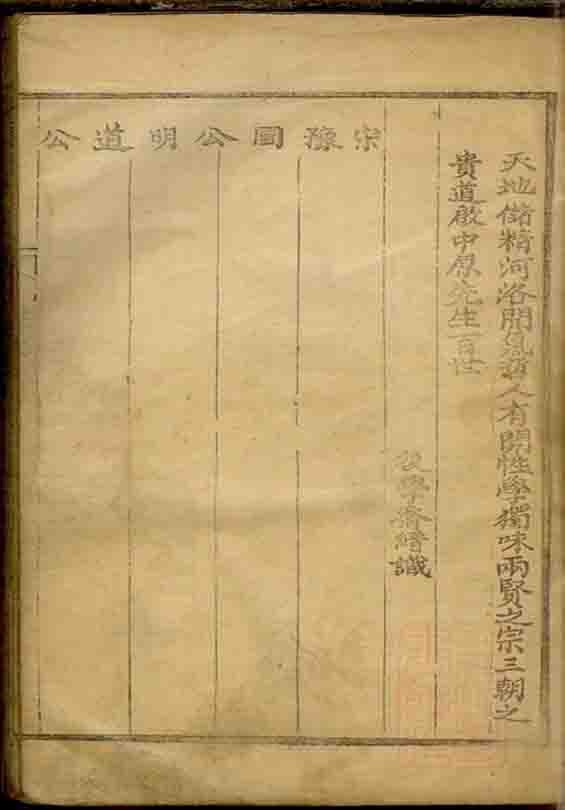 天地儲精河洛開氣哲人有開性學獨味兩賢之宗三朝之
貴道啟中原先生百世
後學喬縉識
宋豫國公明道公